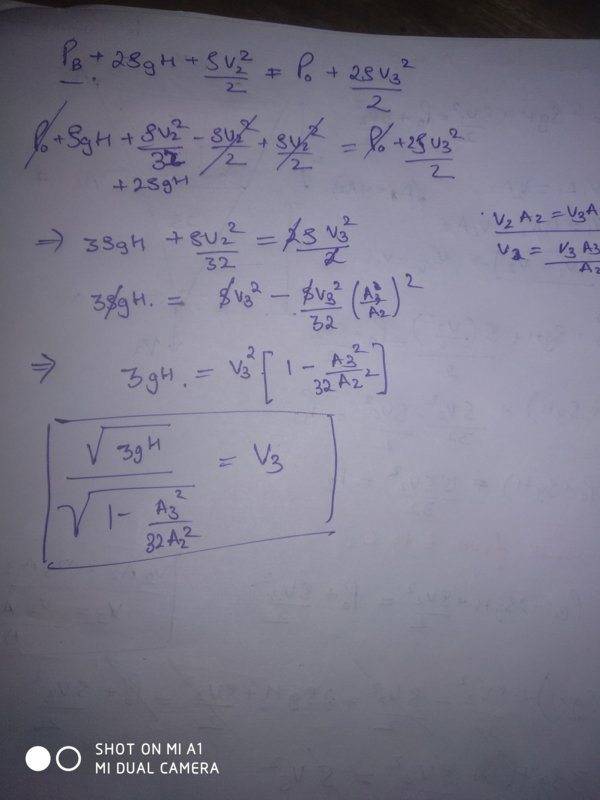 P_B + 2ρgH + ρv₂²/2 = P₀ + 2ρv₃²/2
P₀ + ρgH + ρv₂²/32 - ρv₂²/2 + ρv₂²/2 = P₀ + 2ρv₃²/2
+ 2ρgH
v₂A₂ = v₃A
⇒ 3ρgH + ρv₂²/32 = 2ρv₃²/2
v₂ = v₃A₃/A₂
3ρgH. = ρv₃² - ρv₃²/32 (A₃/A₂)²
⇒ 3gH. = v₃² [1 - A₃²/32A₂²]
√3gH / √(1 - A₃²/32A₂²) = v₃
SHOT ON MI A1
MI DUAL CAMERA